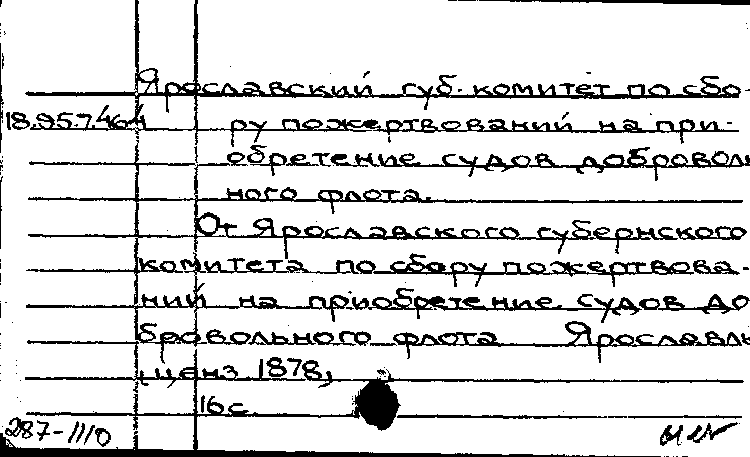 Ярославский губ. комитет по сбо-
18.95.7.464 ру пожертвований на при-
обретение судов доброволь
ного флота.
От Ярославского губернского
комитета по сбору пожертвова-
ний на приобретение судов до
бровольного флота Ярославль
ценз 1878,
16 с.
287-1110